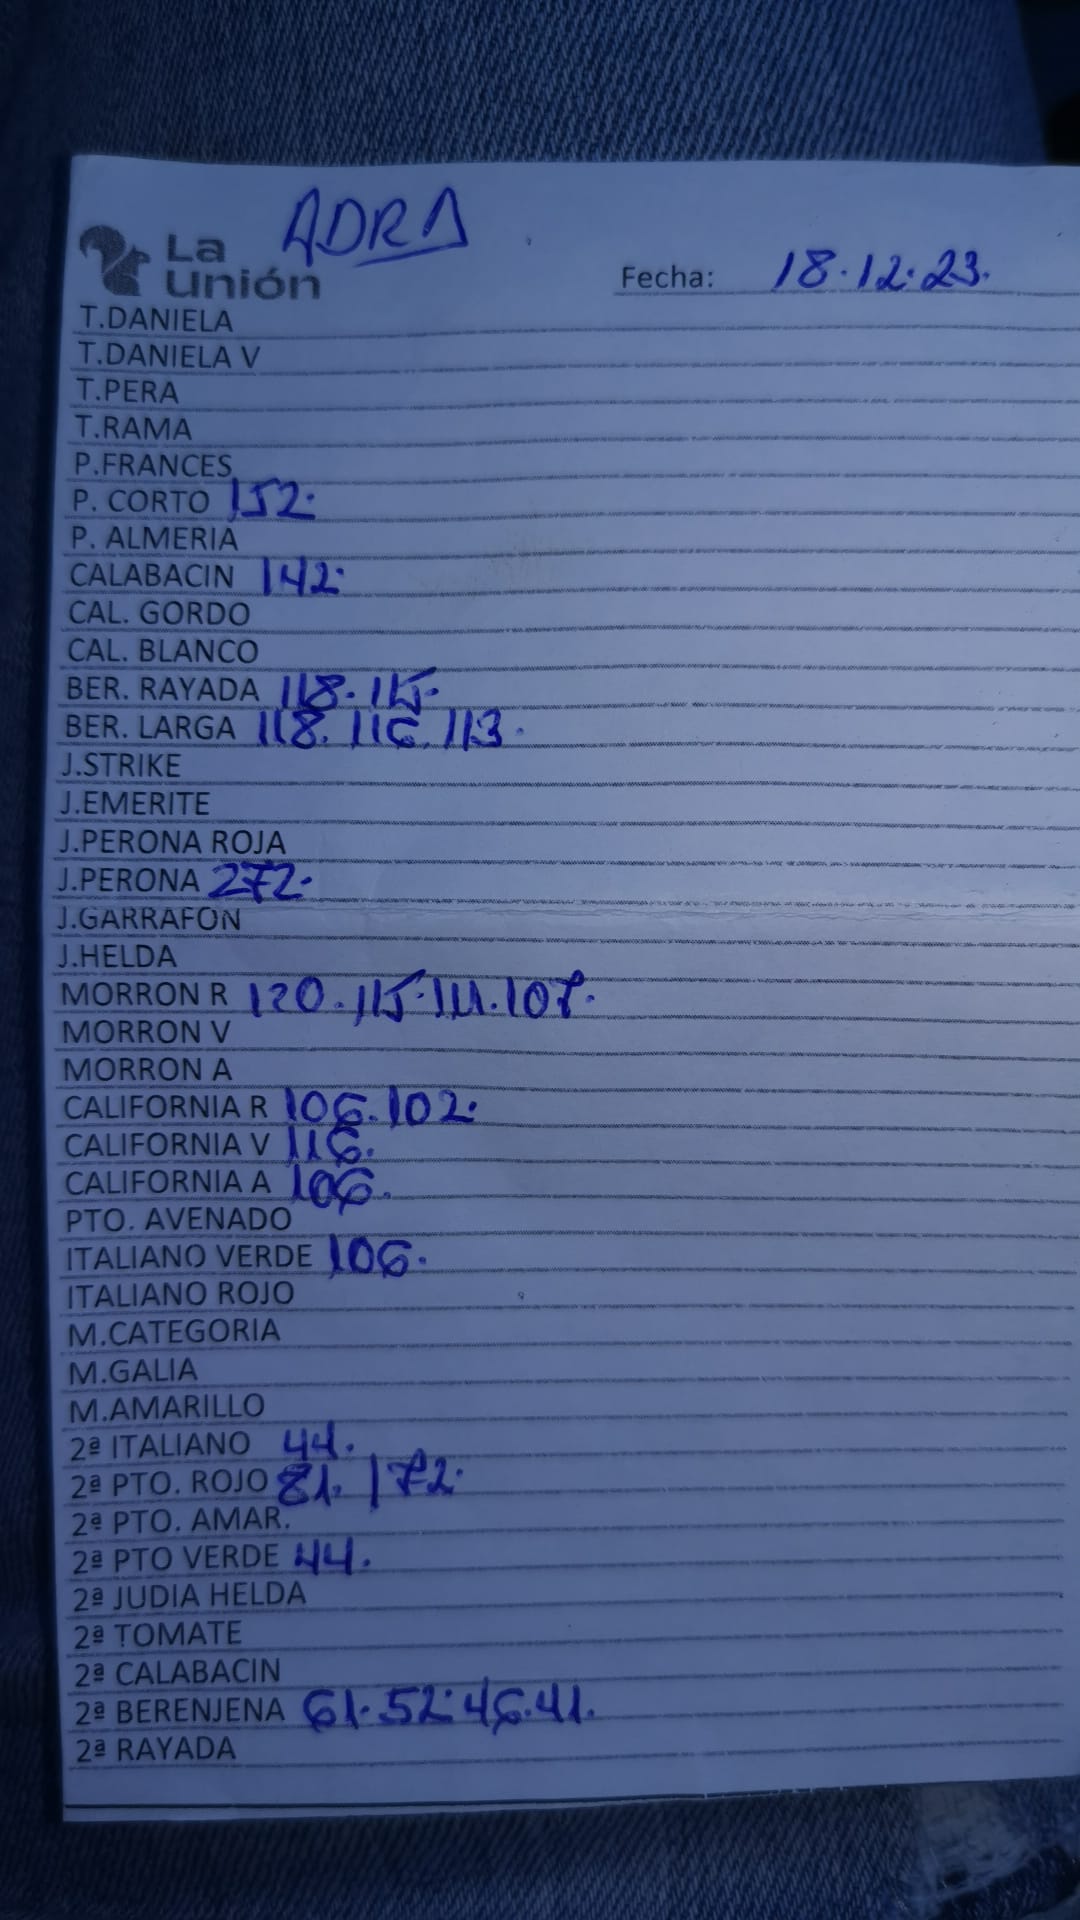 ADRA
La Unión
Fecha: 18.12.23.
T.DANIELA
T.DANIELA V
T.PERA
T.RAMA
P.FRANCES
P. CORTO 152.
P. ALMERIA
CALABACIN 142.
CAL. GORDO
CAL. BLANCO
BER. RAYADA 118. 115.
BER. LARGA 118. 116. 113.
J.STRIKE
J.EMERITE
J.PERONA ROJA
J.PERONA 272.
J.GARRAFON
J.HELDA
MORRON R 120. 115. 111. 107.
MORRON V
MORRON A
CALIFORNIA R 106. 102.
CALIFORNIA V 116.
CALIFORNIA A 106.
PTO. AVENADO
ITALIANO VERDE 106.
ITALIANO ROJO
M.CATEGORIA
M.GALIA
M.AMARILLO
2ª ITALIANO 44.
2ª PTO. ROJO 81. 172.
2ª PTO. AMAR.
2ª PTO VERDE 44.
2ª JUDIA HELDA
2ª TOMATE
2ª CALABACIN
2ª BERENJENA 61. 52. 46. 41.
2ª RAYADA